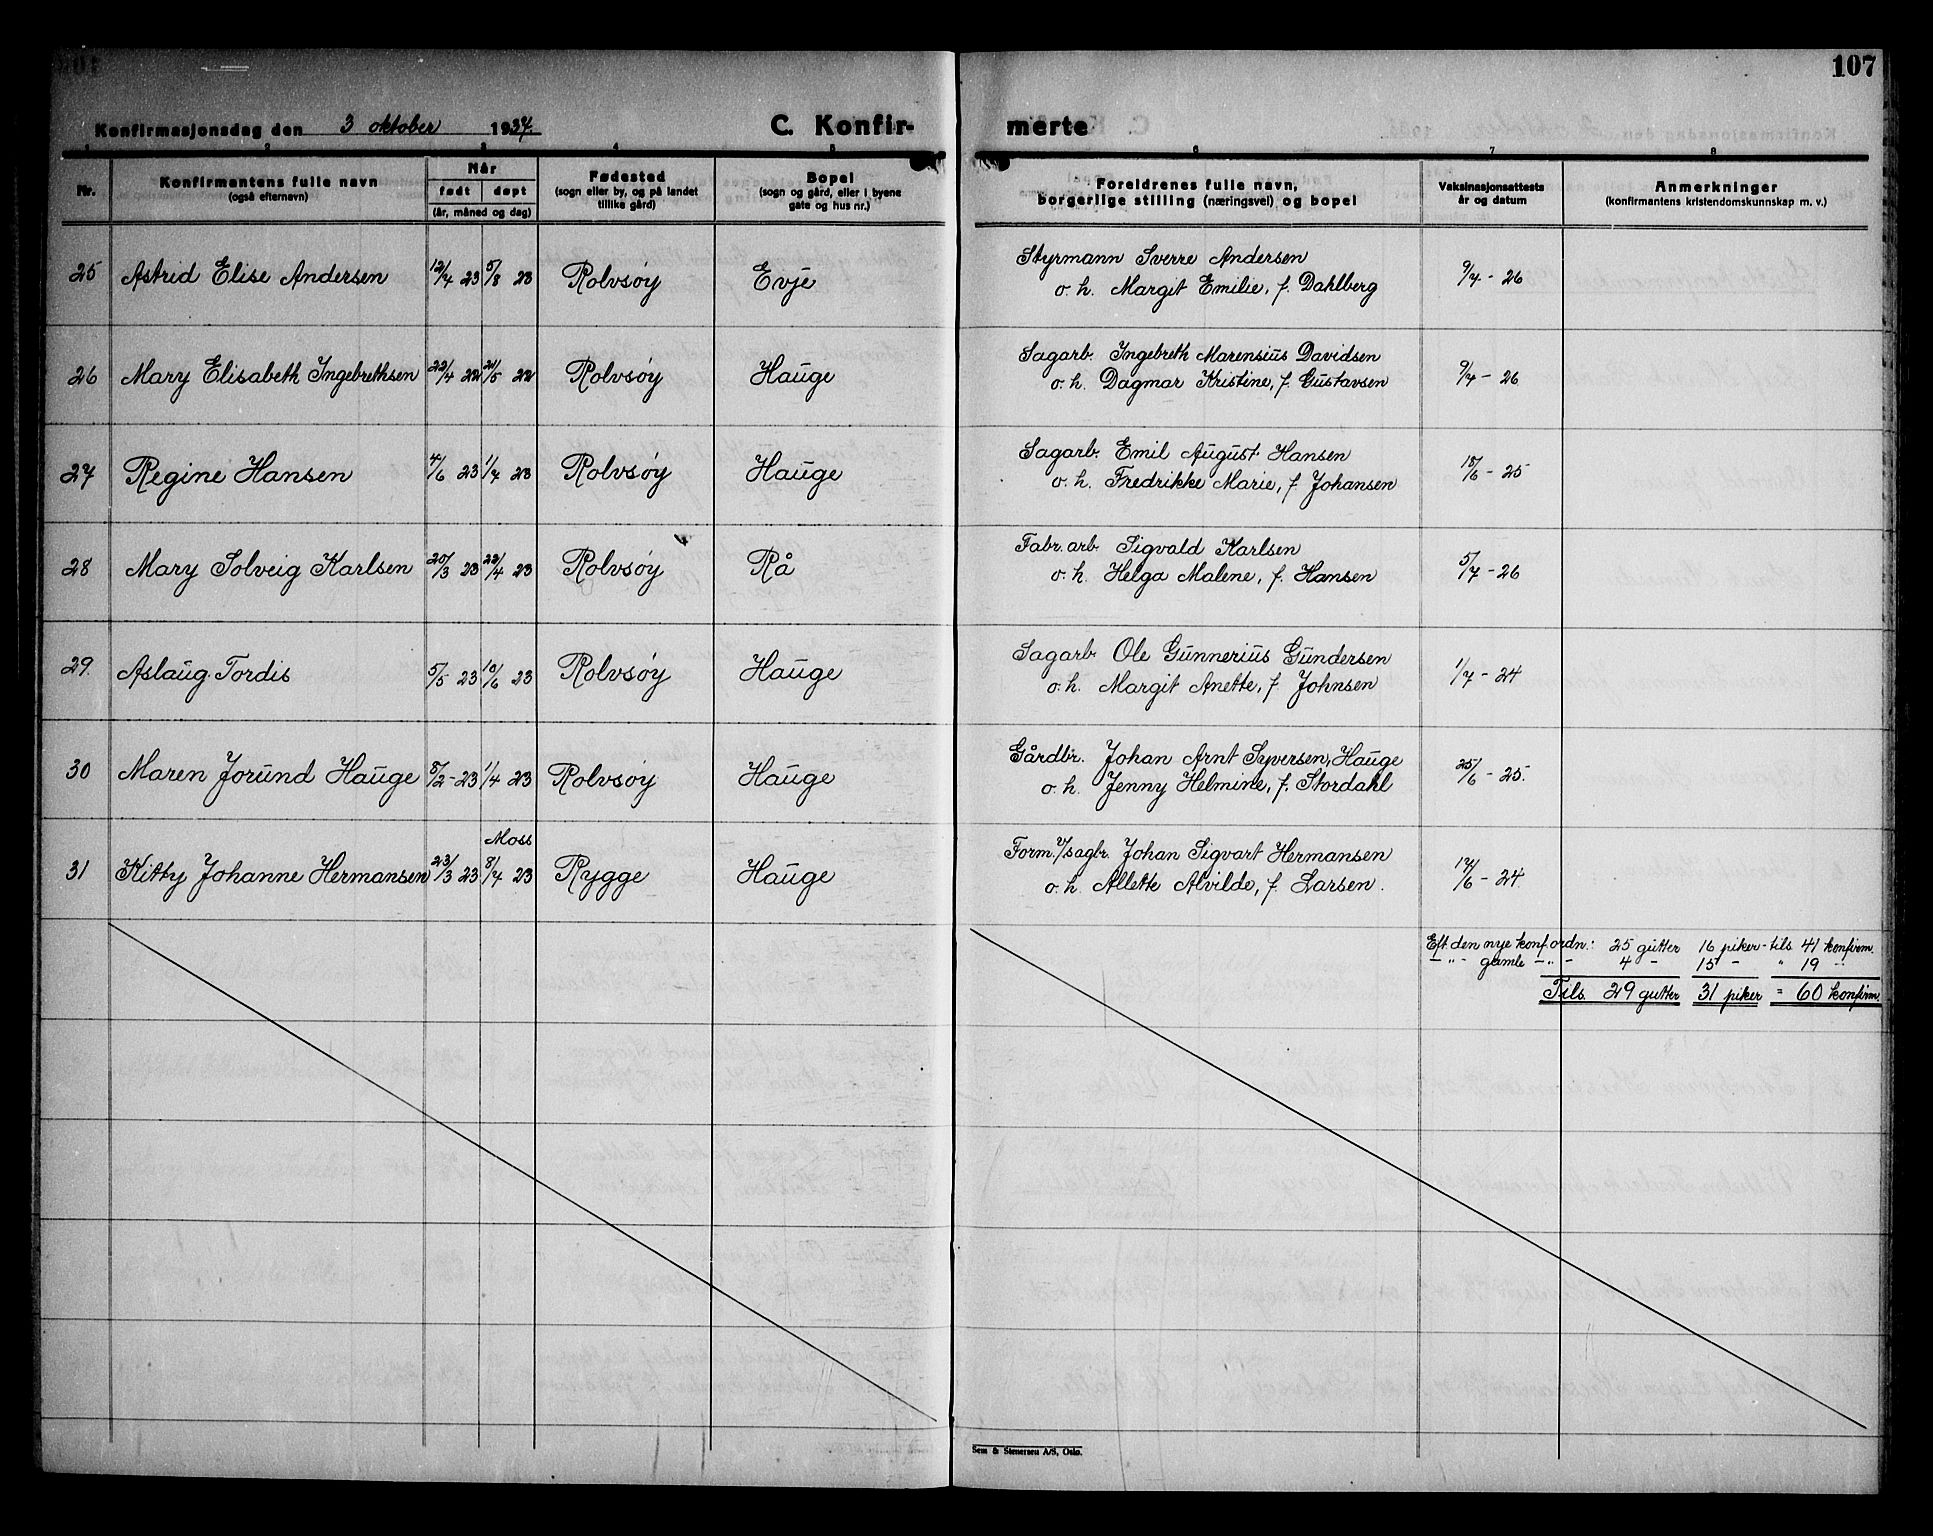 107
Konfirmasjonsdag den 3 oktober 1937. C. Konfir- merte
1 2 3 4 5 6 7 8
Nr. Konfirmantens fulle navn (også efternavn) Når født døpt (år, måned og dag) Fødested (sogn eller by, og på landet tillike gård) Bopel (sogn og gård, eller i byene gate og hus nr.) Foreldrenes fulle navn, borgerlige stilling (næringsvei) og bopel Vaksinasjonsattests år og datum Anmerkninger (konfirmantens kristendomskunnskap m. v.)
25 Astrid Elise Andersen 12/4 23 5/8 23 Rolvsøy Evje Styrmann Sverre Andersen 9/4 - 26
o. h. Margit Emilie, f. Dahlberg
26 Mary Elisabeth Ingebrethsen 22/4 22 21/5 22 Rolvsøy Hauge Sagarb. Ingebreth Marensius Davidsen 9/4 - 26
o. h. Dagmar Kristine, f. Gustavsen
27 Regine Hansen 4/6 23 1/7 23 Rolvsøy Hauge Sagarb. Emil August Hansen 18/6 - 25
o. h. Fredrikke Marie, f. Johansen
28 Mary Solveig Karlsen 20/3 23 22/4 23 Rolvsøy Rå Fabr. arb. Sigvald Karlsen 5/7 - 26
o. h. Helga Malene, f. Hansen
29. Aslaug Tordis 5/5 23 10/6 23 Rolvsøy Hauge Sagarb. Ole Gunnerius Gundersen 1/7 - 24
o. h. Margit Anette, f. Johnsen
30 Maren Jorund Hauge 8/2 - 23 1/4 23 Rolvsøy Hauge Gårdbr. Johan Arnt Syversen, Hauge 25/6 - 25.
o. h. Jenny Helmine, f. Stordahl
Moss
31 Kitty Johanne Hermansen 23/3 23 8/4 23 Rygge Hauge Form. v/sagbr. Johan Sigvart Hermansen 12/6 - 24
o. h. Allette Alvilde, f. Larsen.
Eft. den nye konf. ordn.: 25 gutter 16 piker - tils 41 konfirm.
— " — gamle — " — 4 — 15 — " 19 — " —
Tils 29 gutter 31 piker = 60 konfirm.
Sem & Stenersen A/S, Oslo.